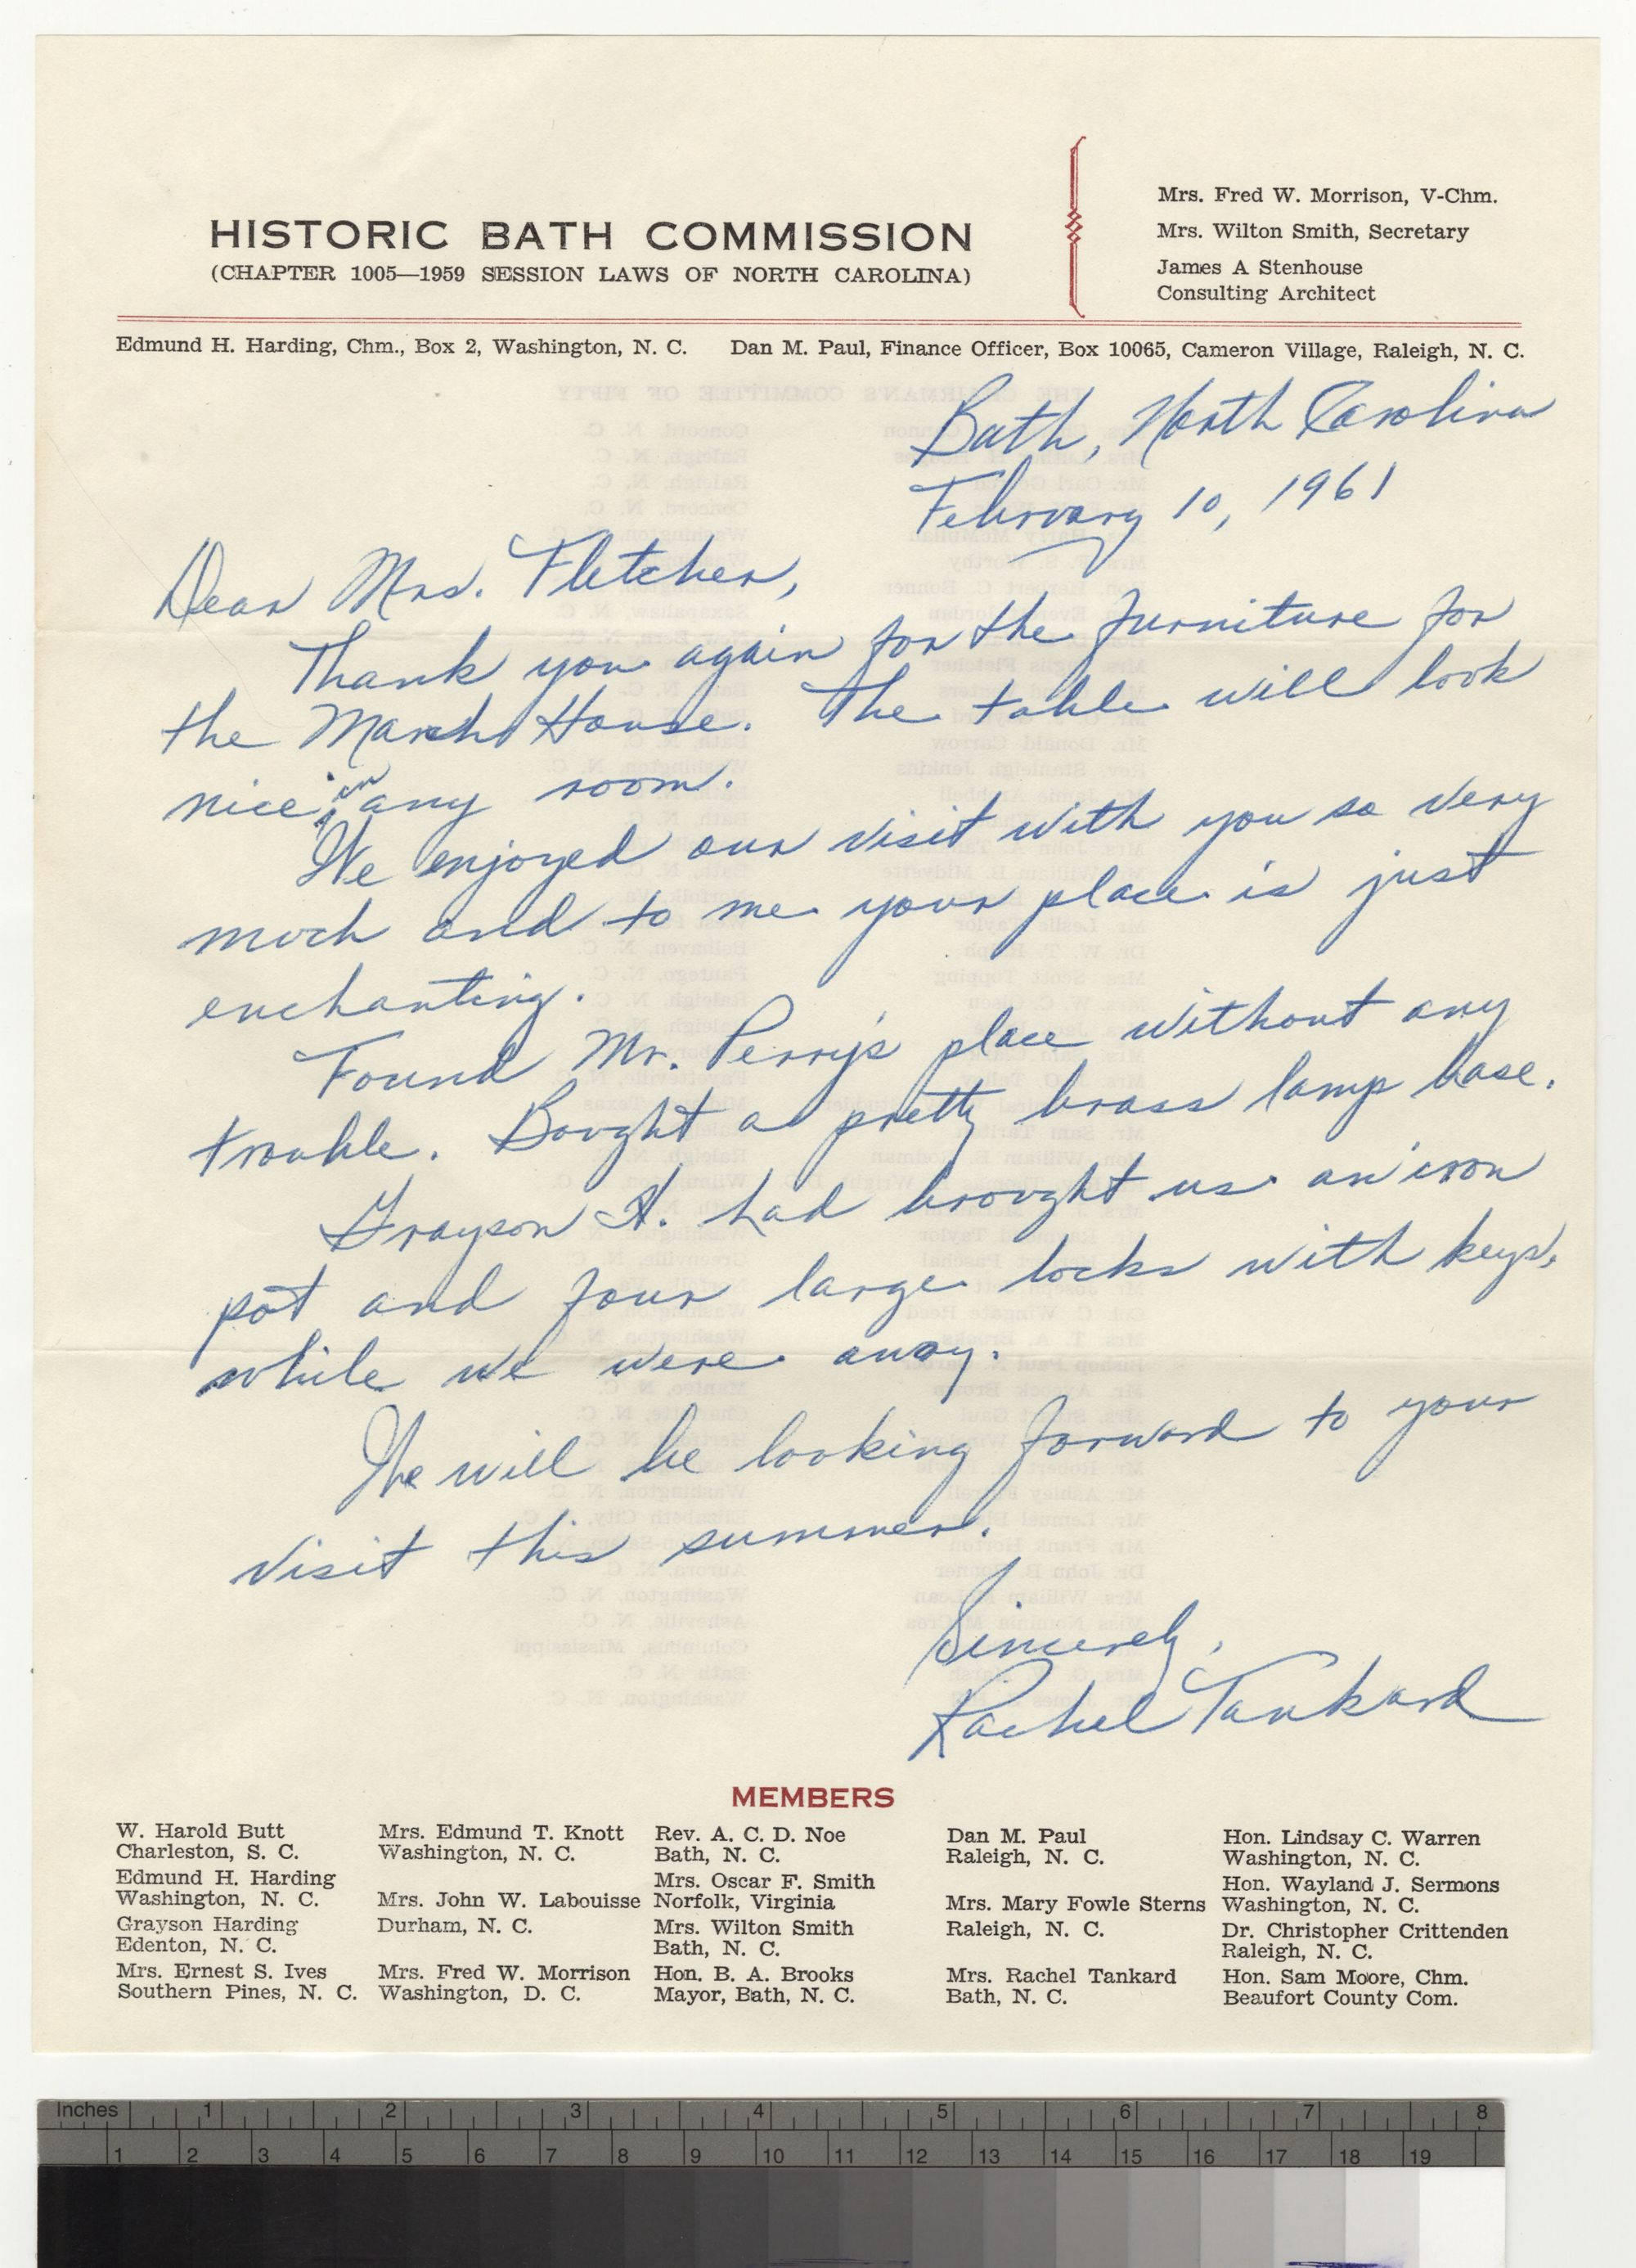 HISTORIC BATH COMMISSION
(CHAPTER 1005—1959 SESSION LAWS OF NORTH CAROLINA)
Mrs. Fred W. Morrison, V-Chm.
Mrs. Wilton Smith, Secretary
James A Stenhouse
Consulting Architect
Edmund H. Harding, Chm., Box 2, Washington, N. C. Dan M. Paul, Finance Officer, Box 10065, Cameron Village, Raleigh, N. C.
Bath, North Carolina
February 10, 1961
Dear Mrs. Fletcher,
Thank you again for the furniture for
the Marsh House. The table will look
nice in any room.
We enjoyed our visit with you so very
much and to me your place is just
enchanting.
Found Mr. Perry's place without any
trouble. Bought a pretty brass lamp base.
Grayson H. had brought us an iron
pot and four large locks with keys,
while we were away.
We will be looking forward to your
visit this summer.
Sincerely,
Rachel Tankard
MEMBERS
W. Harold Butt
Charleston, S. C.
Edmund H. Harding
Washington, N. C.
Grayson Harding
Edenton, N. C.
Mrs. Ernest S. Ives
Southern Pines, N. C.
Mrs. Edmund T. Knott
Washington, N. C.
Mrs. John W. Labouisse
Durham, N. C.
Mrs. Fred W. Morrison
Washington, D. C.
Rev. A. C. D. Noe
Bath, N. C.
Mrs. Oscar F. Smith
Norfolk, Virginia
Mrs. Wilton Smith
Bath, N. C.
Hon. B. A. Brooks
Mayor, Bath, N. C.
Dan M. Paul
Raleigh, N. C.
Mrs. Mary Fowle Sterns
Raleigh, N. C.
Mrs. Rachel Tankard
Bath, N. C.
Hon. Lindsay C. Warren
Washington, N. C.
Hon. Wayland J. Sermons
Washington, N. C.
Dr. Christopher Crittenden
Raleigh, N. C.
Hon. Sam Moore, Chm.
Beaufort County Com.
Inches 1 2 3 4 5 6 7 8
1 2 3 4 5 6 7 8 9 10 11 12 13 14 15 16 17 18 19